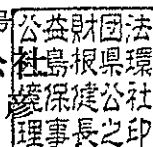 号
社
彦
公益財団法
人島根県環
境保健公社
理事長之印